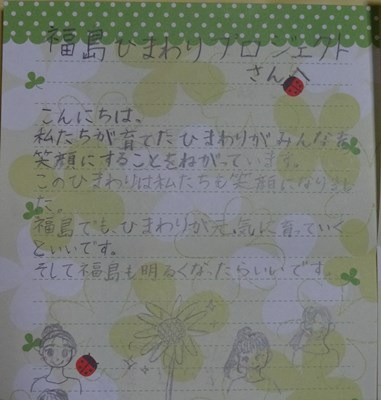 福島ひまわりプロジェクト
さんへ
こんにちは、
私たちが育てたひまわりがみんなを
笑顔にすることをねがっています。
このひまわりは私たちも笑顔になりまし
た。
福島でも、ひまわりが元気に育っていく
といいです。
そして福島も明るくなったらいいです。